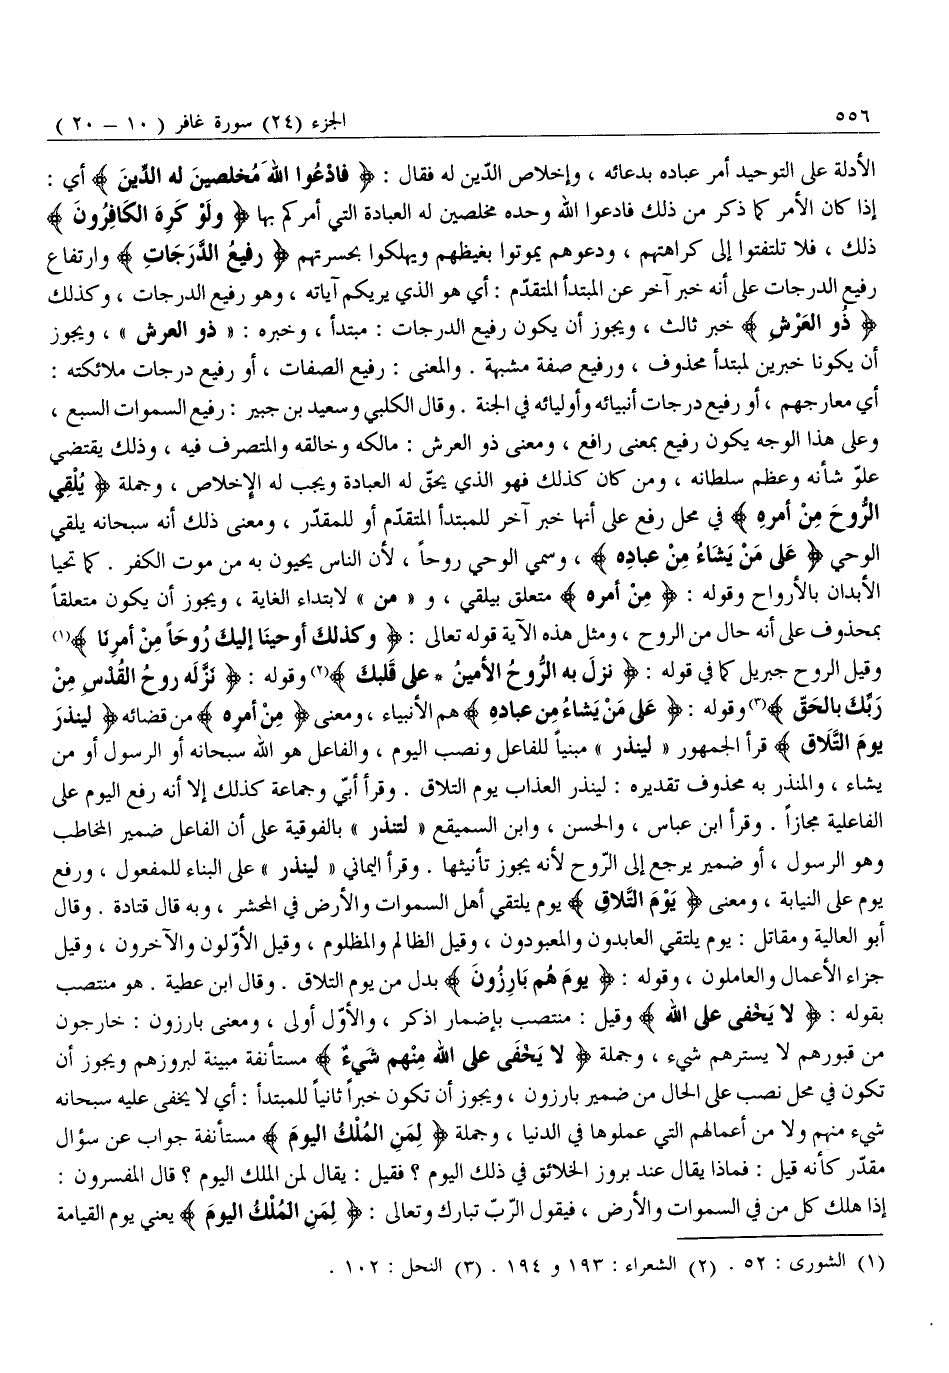 ٥٥٦ الجزء (٢٤) سورة غافر ( ١٠ – ٢٠ )
الأدلة على التوحيد أمر عباده بدعائه ، وإخلاص الدّين له فقال : ﴿ فادْعُوا اللهَ مُخلصينَ له الدِّينَ ﴾ أي :
إذا كان الأمر كما ذكر من ذلك فادعوا الله وحده مخلصين له العبادة التي أمركم بها ﴿ ولَوْ كَرِهَ الكَافِرُونَ ﴾
ذلك ، فلا تلتفتوا إلى كراهتهم ، ودعوهم يموتوا بغيظهم ويهلكوا بحسرتهم ﴿ رفيعُ الدَّرَجَاتِ ﴾ وارتفاع
رفيع الدرجات على أنه خبر آخر عن المبتدأ المتقدّم : أي هو الذي يريكم آياته ، وهو رفيع الدرجات ، وكذلك
﴿ ذُو العَرْشِ ﴾ خبر ثالث ، ويجوز أن يكون رفيع الدرجات : مبتدأ ، وخبره : « ذو العرش » ، ويجوز
أن يكونا خبرين لمبتدأ محذوف ، ورفيع صفة مشبهة . والمعنى : رفيع الصفات ، أو رفيع درجات ملائكته :
أي معارجهم ، أو رفيع درجات أنبيائه وأوليائه في الجنة . وقال الكلبي وسعيد بن جبير : رفيع السموات السبع ،
وعلى هذا الوجه يكون رفيع بمعنى رافع ، ومعنى ذو العرش : مالكه وخالقه والمتصرف فيه ، وذلك يقتضي
علوّ شأنه وعظم سلطانه ، ومن كان كذلك فهو الذي يحقّ له العبادة ويجب له الإخلاص ، وجملة ﴿ يُلْقِي
الرُّوحَ مِنْ أمرِهِ ﴾ في محل رفع على أنها خبر آخر للمبتدأ المتقدّم أو للمقدّر ، ومعنى ذلك أنه سبحانه يلقي
الوحي ﴿ عَلى مَنْ يَشَاءُ مِنْ عبادِه ﴾ ، وسمي الوحي روحاً ، لأن الناس يحيون به من موت الكفر . كما تحيا
الأبدان بالأرواح وقوله : ﴿ مِنْ أمره ﴾ متعلق بيلقي ، و « من » لابتداء الغاية ، ويجوز أن يكون متعلقاً
بمحذوف على أنه حال من الروح ، ومثل هذه الآية قوله تعالى : ﴿ وكذلكَ أوحينَا إليكَ رُوحَاً مِنْ أمرِنَا ﴾(١)
وقيل الروح جبريل كما في قوله : ﴿ نزلَ به الرُّوحُ الأمينُ * على قَلبكَ ﴾(٢) وقوله : ﴿ نَزَّلَه روحُ القُدْسِ مِنْ
رَبِّكَ بالحَقّ ﴾(٣) وقوله : ﴿ عَلى مَنْ يَشاءُ مِن عبادِهِ ﴾ هم الأنبياء ، ومعنى ﴿ مِنْ أمرِه ﴾ من قضائه ﴿ لينذرَ
يومَ التَّلَاق ﴾ قرأ الجمهور « لينذر » مبنياً للفاعل ونصب اليوم ، والفاعل هو الله سبحانه أو الرسول أو من
يشاء ، والمنذر به محذوف تقديره : لينذر العذاب يوم التلاق . وقرأ أبيّ وجماعة كذلك إلا أنه رفع اليوم على
الفاعلية مجازاً . وقرأ ابن عباس ، والحسن ، وابن السميقع « لتنذر » بالفوقية على أن الفاعل ضمير المخاطب
وهو الرسول ، أو ضمير يرجع إلى الرّوح لأنه يجوز تأنيثها . وقرأ اليماني « لينذر » على البناء للمفعول ، ورفع
يوم على النيابة ، ومعنى ﴿ يَوْمَ التَّلاقِ ﴾ يوم يلتقي أهل السموات والأرض في المحشر ، وبه قال قتادة . وقال
أبو العالية ومقاتل : يوم يلتقي العابدون والمعبودون ، وقيل الظالم والمظلوم ، وقيل الأوّلون والآخرون ، وقيل
جزاء الأعمال والعاملون ، وقوله : ﴿ يومَ هُم بَارِزُونَ ﴾ بدل من يوم التلاق . وقال ابن عطية . هو منتصب
بقوله : ﴿ لا يَخْفى على الله ﴾ وقيل : منتصب بإضمار اذكر ، والأوّل أولى ، ومعنى بارزون : خارجون
من قبورهم لا يسترهم شيء ، وجملة ﴿ لا يَخْفَى على الله مِنْهم شَيءٌ ﴾ مستأنفة مبينة لبروزهم ويجوز أن
تكون في محل نصب على الحال من ضمير بارزون ، ويجوز أن تكون خبراً ثانياً للمبتدأ : أي لا يخفى عليه سبحانه
شيء منهم ولا من أعمالهم التي عملوها في الدنيا ، وجملة ﴿ لِمَنِ المُلْكُ اليومَ ﴾ مستأنفة جواب عن سؤال
مقدّر كأنه قيل : فماذا يقال عند بروز الخلائق في ذلك اليوم ؟ فقيل : يقال لمن الملك اليوم ؟ قال المفسرون :
إذا هلك كل من في السموات والأرض ، فيقول الرّبّ تبارك وتعالى : ﴿ لِمَنِ المُلْكُ اليومَ ﴾ يعني يوم القيامة
(١) الشورى : ٥٢ . (٢) الشعراء : ١٩٣ و ١٩٤ . (٣) النحل : ١٠٢ .